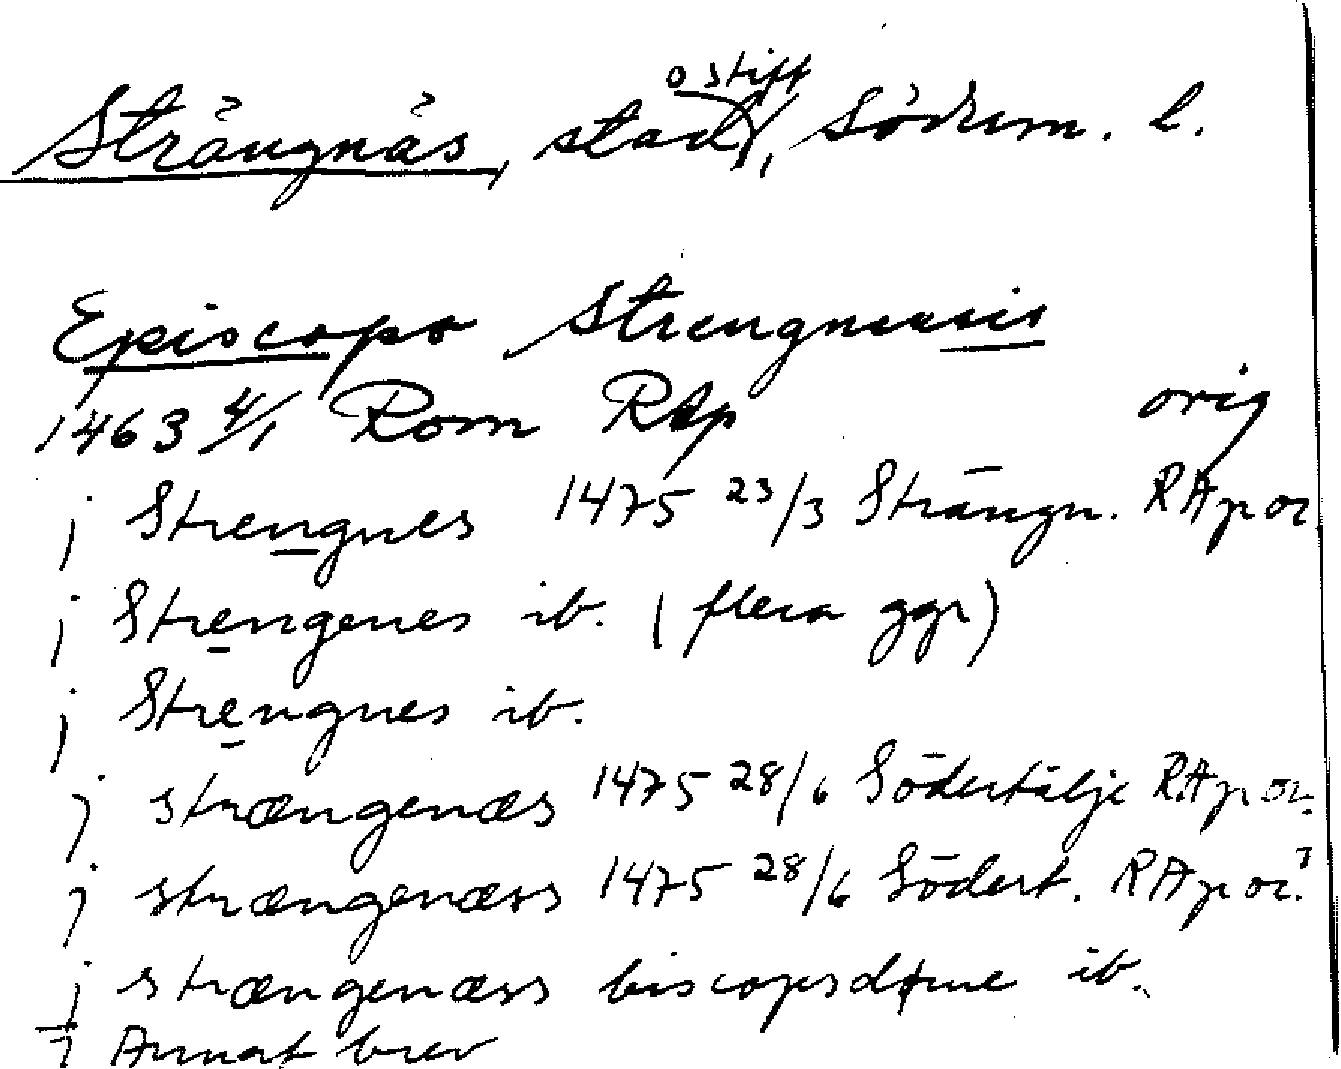 Strängnäs, stad o stift, Söderm. l.
Episcopo Strengnensis
1463 4/1 Rom RAp orig
j Strengnes 1475 23/3 Strängn. RAp or
j Strengenes ib. (flera ggr)
j Strengnes ib.
j strængenæs 1475 28/6 Södertälje RAp or.
j strængenæss 1475 28/6 Södert. RAp or.1
j strængenæss biscopsdøme ib.
1 Annat brev